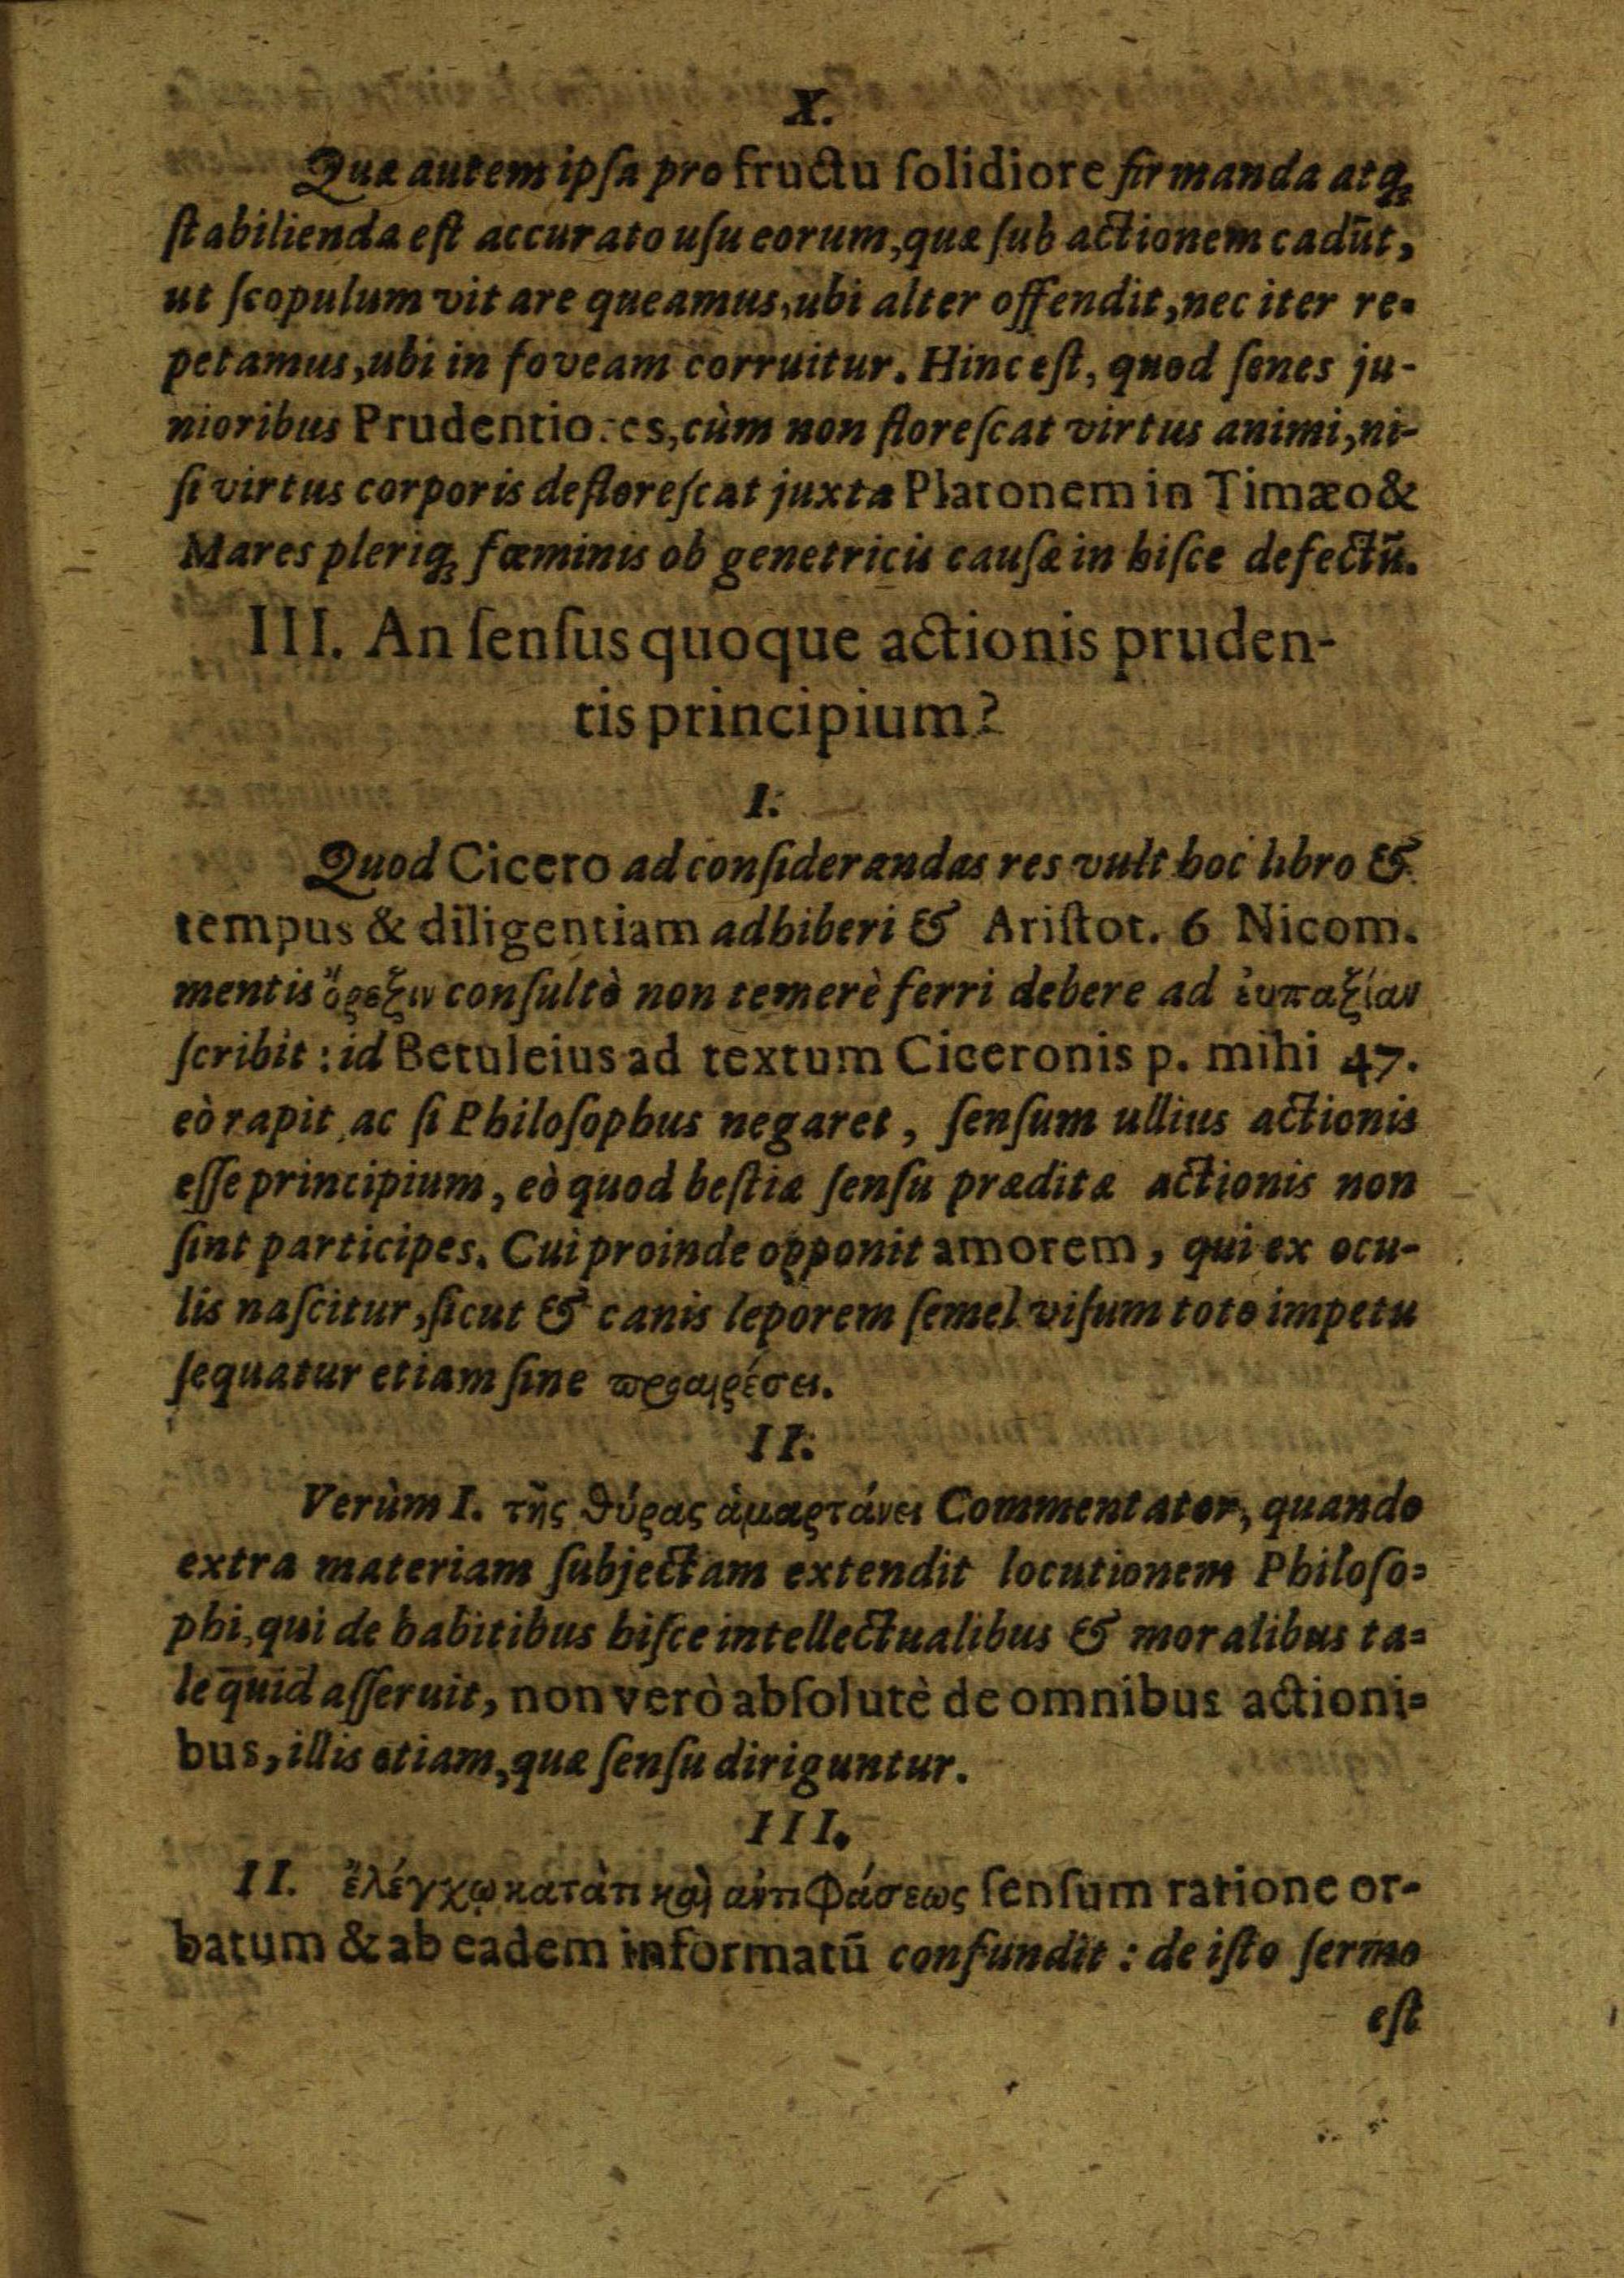 X.
Quæ autem ipſa pro fructu ſolidiore firmanda atq;
ſtabilienda eſt accurato uſu eorum, quæ ſub actionem cadūt,
ut ſcopulum vitare queamus, ubi alter offendit, nec iter re-
petamus, ubi in foveam corruitur. Hinc eſt, quod ſenes ju-
nioribus Prudentiores, cùm non floreſcat virtus animi, ni-
ſi virtus corporis defloreſcat juxta Platonem in Timæo &
Mares pleriq; fœminis ob genetricis cauſæ in hiſce defectū.
III. An ſenſus quoque actionis pruden-
tis principium?
I.
Quod Cicero ad conſiderandas res vult hoc libro &
tempus & diligentiam adhiberi & Ariſtot. 6 Nicom.
mentis ὄρεξιν conſultò non temerè ferri debere ad ἐυπαξίαν
ſcribit: id Betuleius ad textum Ciceronis p. mihi 47.
eò rapit ac ſi Philoſophus negaret, ſenſum ullius actionis
eſſe principium, eò quod beſtiæ ſenſu præditæ actionis non
ſint participes. Cui proinde opponit amorem, qui ex ocu-
lis naſcitur, ſicut & canis leporem ſemel viſum toto impetu
ſequatur etiam ſine προαιρέσει.
II.
Verùm I. τῆς θύρας ἁμαρτάνει Commentator, quando
extra materiam ſubjectam extendit locutionem Philoſo-
phi, qui de habitibus hiſce intellectualibus & moralibus ta-
le quid aſſeruit, non verò abſolutè de omnibus actioni-
bus, illis etiam, quæ ſenſu diriguntur.
III.
II. ἐλέγχῳ κατὰ τὶ καὶ ἀντιφάσεως ſenſum ratione or-
batum & ab eadem informatū confundit: de iſto ſermo
eſt